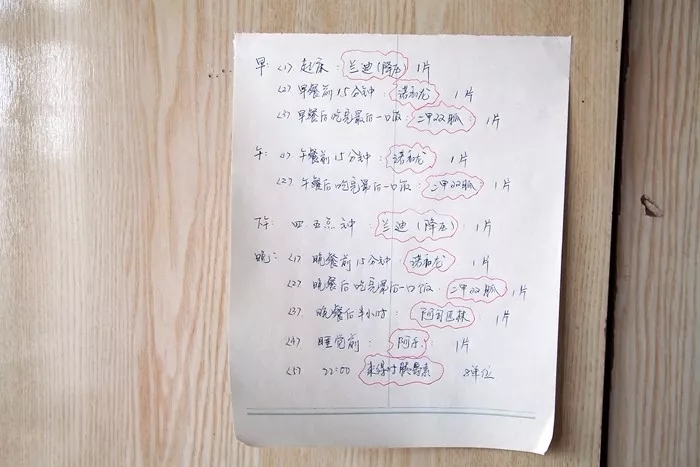 早: <1> 起床: 兰迪(降压) 1片
<2> 早餐前15分钟: 诺和龙 1片
<3> 早餐后吃完最后一口饭: 二甲双胍: 1片
午: <1> 午餐前15分钟: 诺和龙 1片
<2> 午餐后吃完最后一口饭: 二甲双胍: 1片
下午: 四.五点钟: 兰迪(降压) 1片
晚: <1> 晚餐前15分钟: 诺和龙 1片
<2> 晚餐后吃完最后一口饭: 二甲双胍 1片
<3> 晚餐后半小时: 阿司匹林 1片
<4> 睡觉前: 阿乐: 1片
<5> 22:00 来得时胰岛素 8单位